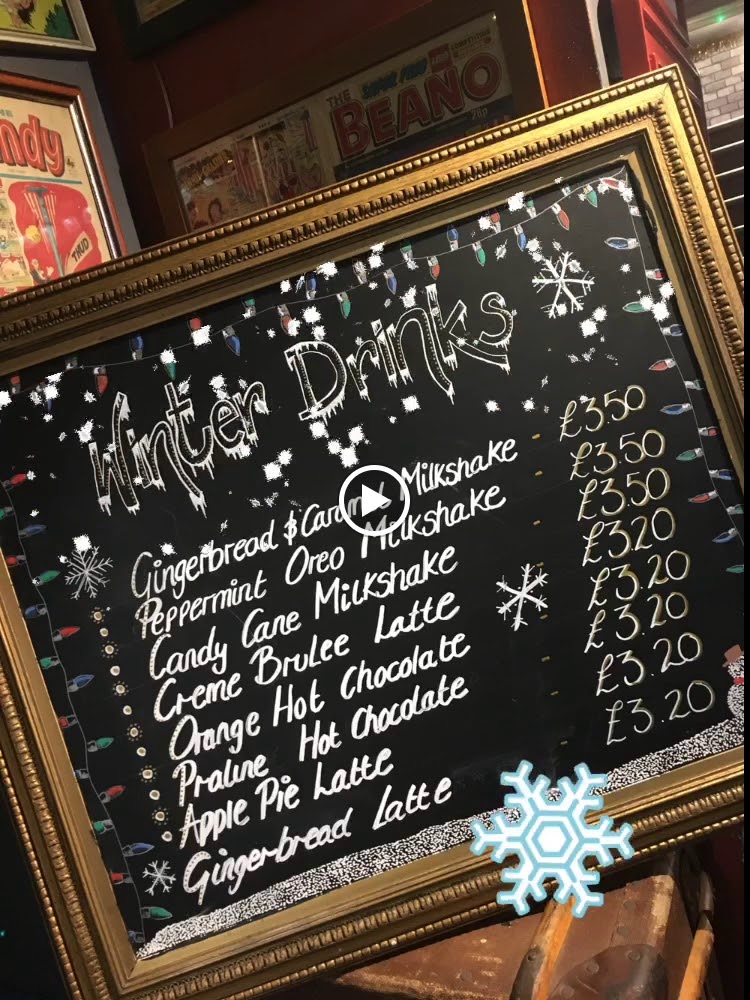 THE
BEANO
andy
THUD
Winter Drinks
Gingerbread & Caramel Milkshake - £3.50
Peppermint Oreo Milkshake - £3.50
Candy Cane Milkshake - £3.50
Creme Brulee Latte £3.20
Orange Hot Chocolate - £3.20
Praline Hot Chocolate - £3.20
Apple Pie Latte - £3.20
Gingerbread Latte - £3.20